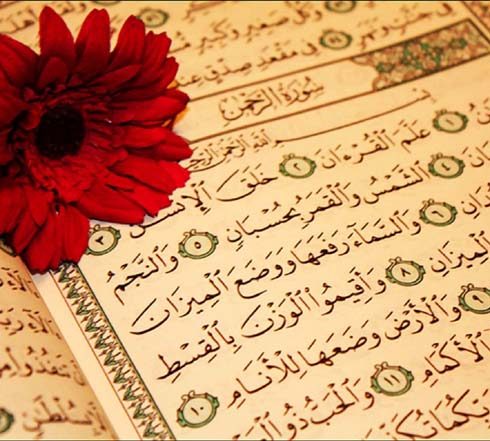 فِي جَنَّٰتٍ وَنَهَرٍ
وَكُلُّ صَغِيرٍ وَكَبِيرٍ
فِي مَقْعَدِ صِدْقٍ عِندَ
سُورَةُ الرَّحْمَٰن
بِسْمِ اللَّهِ الرَّحْمَٰنِ الرَّحِيمِ
١ عَلَّمَ الْقُرْءَانَ ٢ خَلَقَ الْإِنسَٰنَ
٣
٤ الشَّمْسُ وَالْقَمَرُ بِحُسْبَانٍ ٥ وَالنَّجْمُ
٦ وَالسَّمَاءَ رَفَعَهَا وَوَضَعَ الْمِيزَانَ
الْمِيزَانِ ٨ وَأَقِيمُوا الْوَزْنَ بِالْقِسْطِ
٩ وَالْأَرْضَ وَضَعَهَا لِلْأَنَامِ ١٠
الْأَكْمَامِ ١١ وَالْحَبُّ ذُو